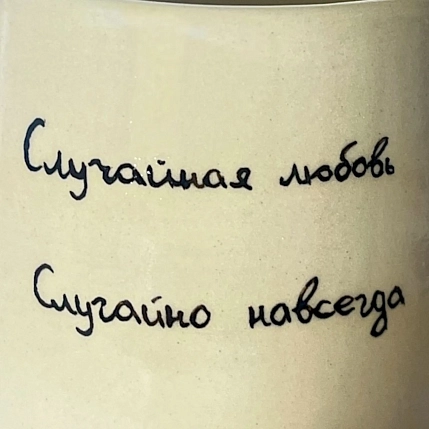 Случайная любовь
Случайно навсегда